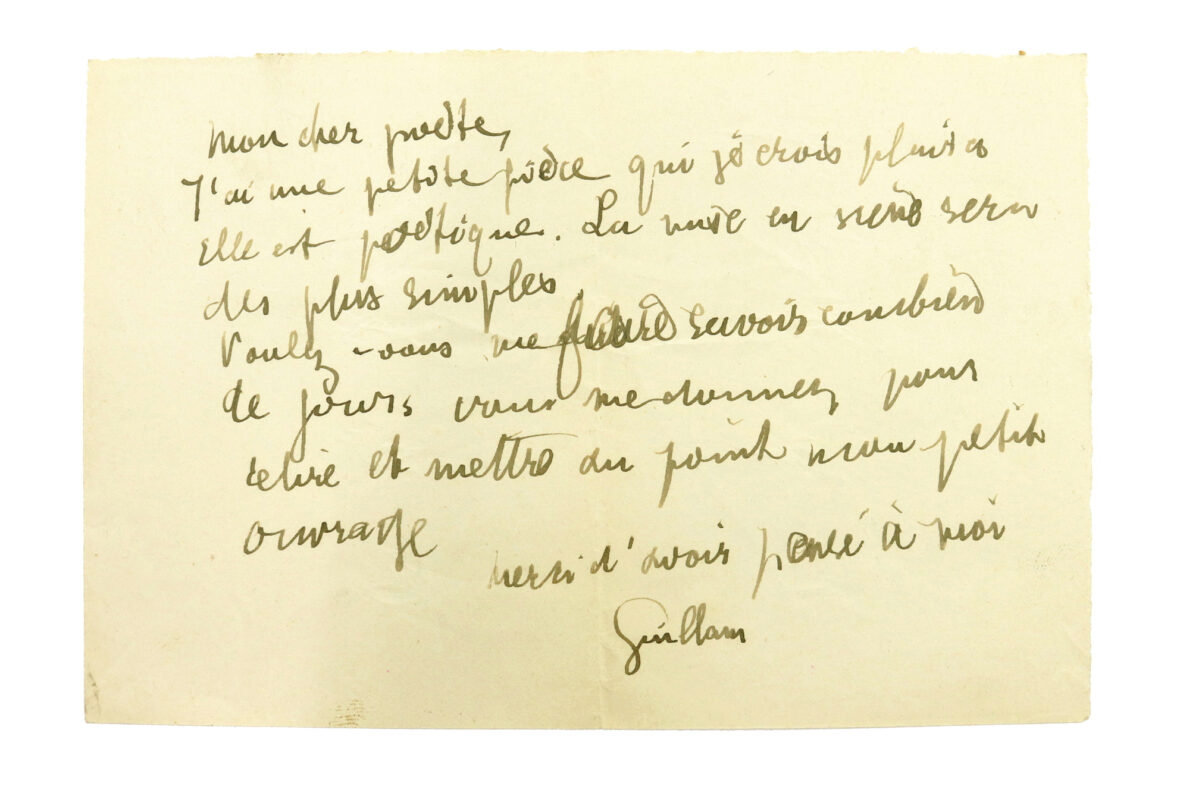 Mon cher poète,
J'ai une petite pièce qui je crois plaira
Elle est poétique. La mise en scène sera
des plus simples
Voulez-vous me faire savoir combien
de jours vous me donnez pour
relire et mettre au point mon petit
ouvrage
Merci d'avoir pensé à moi